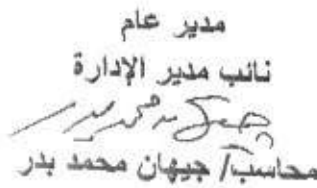 مدير عام
نائب مدير الإدارة
محاسب/ جيهان محمد بدر